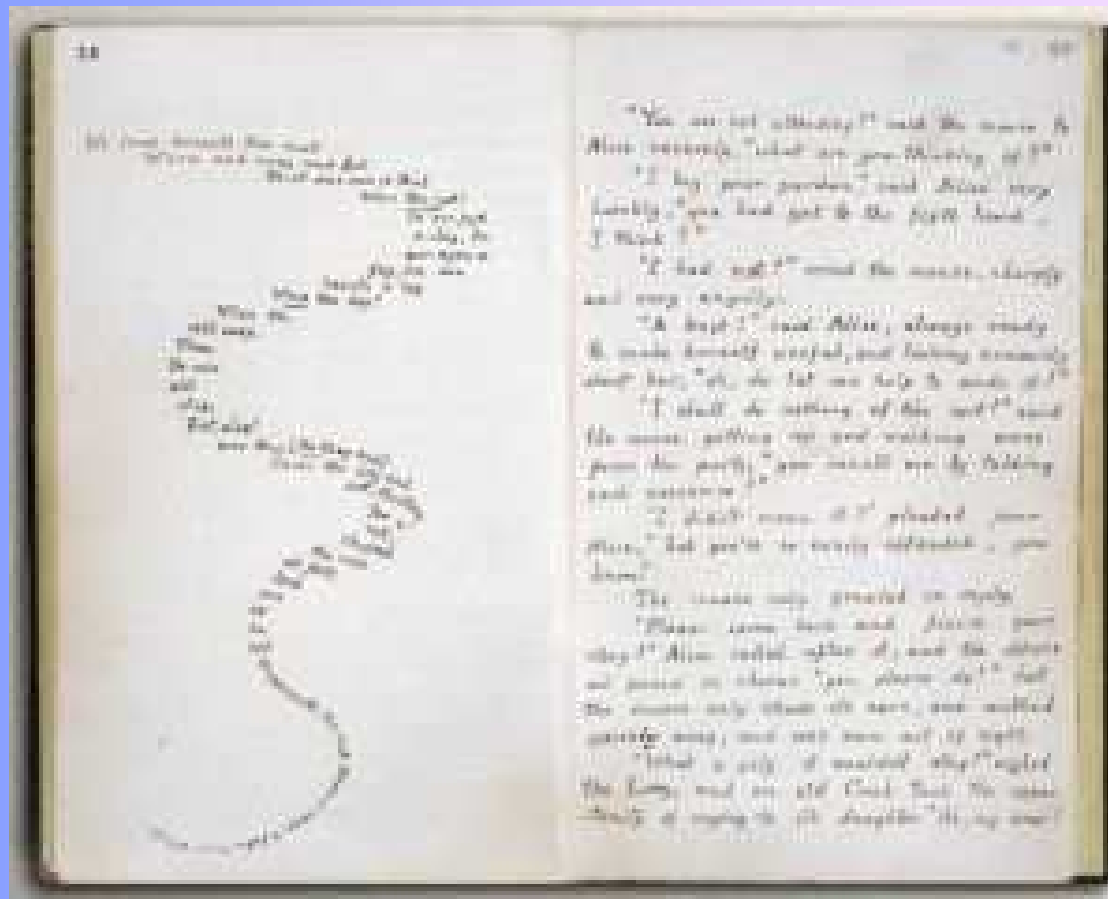 28
We lived beneath the mat
Warm and snug and fat
But one woe, & that
Was the cat!
To our joys
a clog, In
our eyes a
fog, On our
hearts a log
Was the dog!
When the
cat's away,
Then
The mice
will
play,
But, alas!
one day, (So they say)
Came the dog and
cat, Hunting
for a
rat,
"You are not attending!" said the mouse to
Alice severely, "what are you thinking of?"
"I beg your pardon," said Alice very
humbly, "you had got to the fifth bend,
I think?"
"I had not!" cried the mouse, sharply
and very angrily.
"A knot!" said Alice, always ready
to make herself useful, and looking anxiously
about her, "oh, do let me help to undo it!"
"I shall do nothing of the sort!" said
the mouse, getting up and walking away
from the party, "you insult me by talking
such nonsense!"
"I didn't mean it!" pleaded poor
Alice, "but you're so easily offended, you
know."
The mouse only growled in reply.
"Please come back and finish your
story!" Alice called after it, and the others
all joined in chorus "yes, please do!" but
the mouse only shook its ears, and walked
quickly away, and was soon out of sight.
"What a pity it wouldn't stay!" sighed
the Lory, and an old Crab took the opportunity
of saying to its daughter "Ah, my dear!